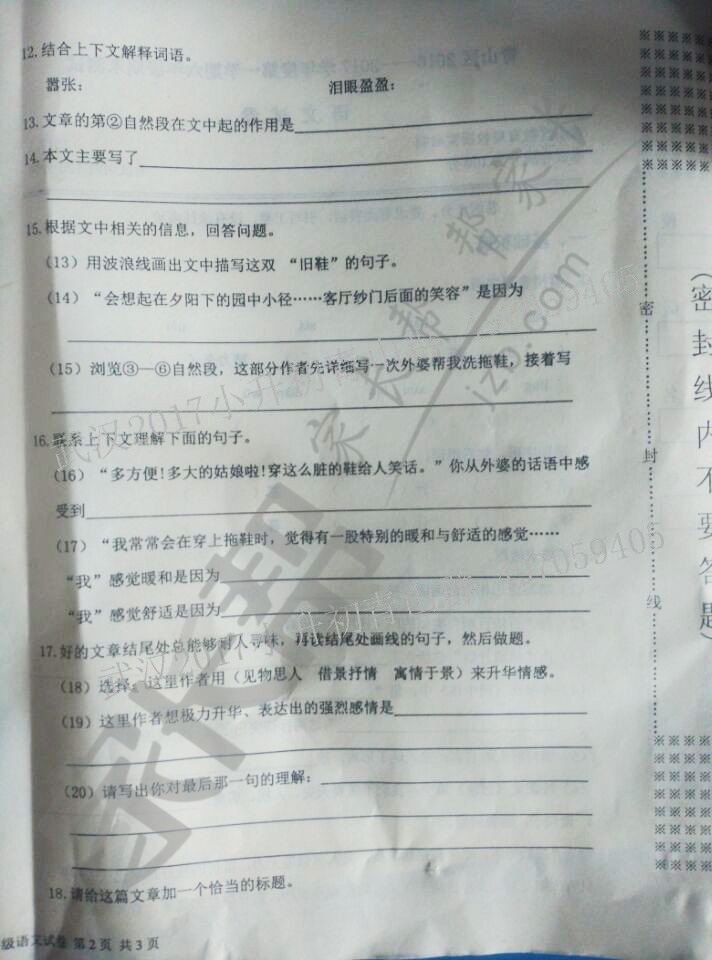 12.结合上下文解释词语。
嚣张： 泪眼盈盈：
13.文章的第②自然段在文中起的作用是
14.本文主要写了
15.根据文中相关的信息，回答问题。
（13）用波浪线画出文中描写这双 “旧鞋”的句子。
（14）“会想起在夕阳下的园中小径……客厅纱门后面的笑容”是因为
（15）浏览③—⑥自然段，这部分作者先详细写一次外婆帮我洗拖鞋，接着写
16.联系上下文理解下面的句子。
（16）“多方便!多大的姑娘啦!穿这么脏的鞋给人笑话。”你从外婆的话语中感
受到
（17）“我常常会在穿上拖鞋时，觉得有一股特别的暖和与舒适的感觉……
“我”感觉暖和是因为
“我”感觉舒适是因为
17.好的文章结尾处总能够耐人寻味，再读结尾处画线的句子，然后做题。
（18）选择：这里作者用（见物思人 借景抒情 寓情于景）来升华情感。
（19）这里作者想极力升华、表达出的强烈感情是
（20）请写出你对最后那一句的理解：
18.请给这篇文章加一个恰当的标题。
级语文试卷 第2页 共3页
密
封
线
（密封线内不要答题）
家长帮
jzb.com
武汉2017小升初青
059405